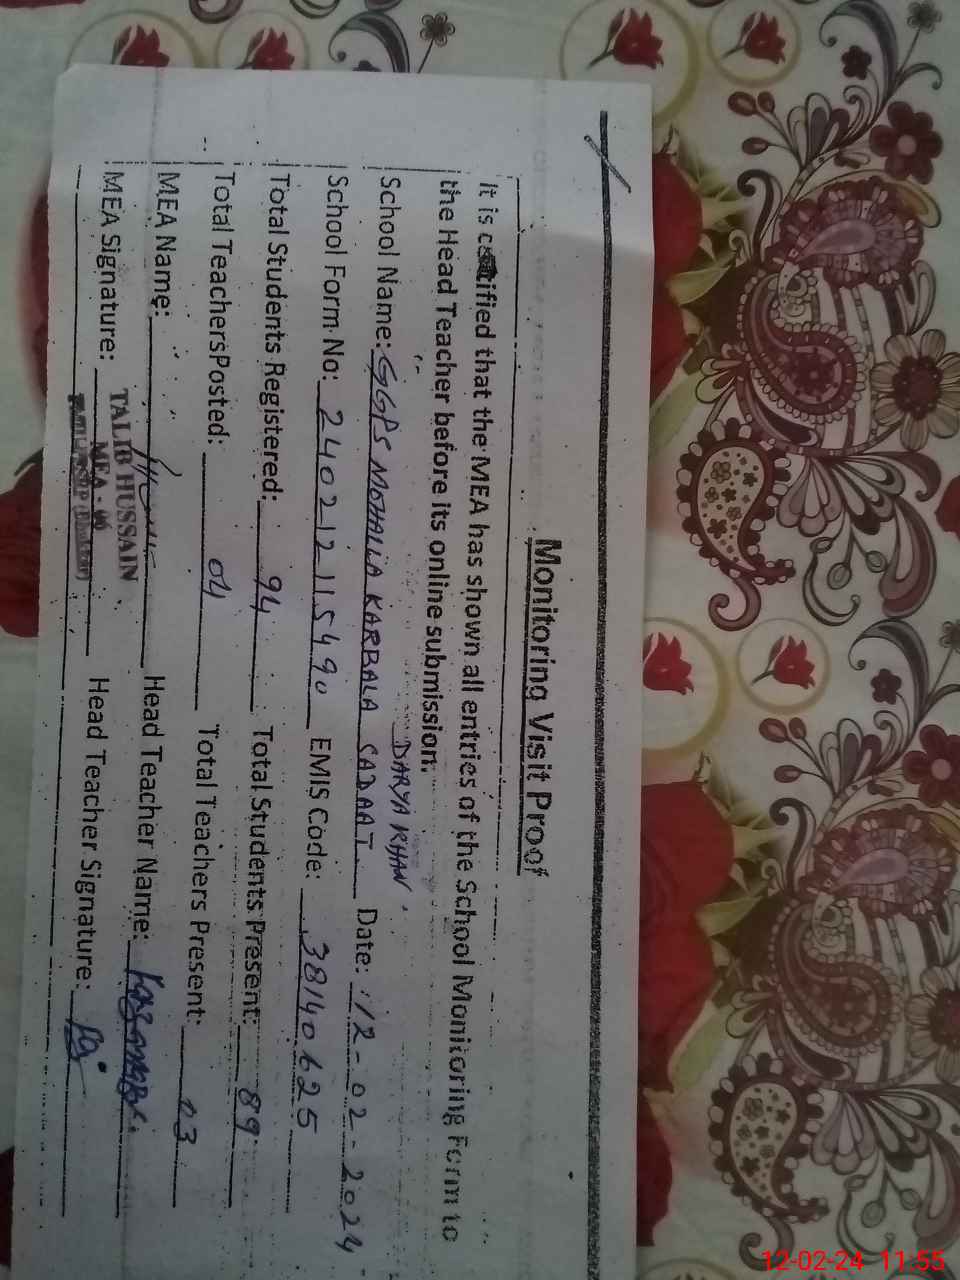 Monitoring Visit Proof
It is certified that the MEA has shown all entries of the School Monitoring Form to
the Head Teacher before its online submission.
DARYA KHAN
School Name: GGPS MOHALLA KARBALA SADAAT Date: 12-02-2024
School Form No: 240212115490 EMIS Code: 38140625
Total Students Registered: 94 Total Students Present: 89
Total Teachers Posted: 04 Total Teachers Present: 03
MEA Name: Head Teacher Name:
MEA Signature: Head Teacher Signature:
TALIB HUSSAIN
MEA -
12-02-24 11:55